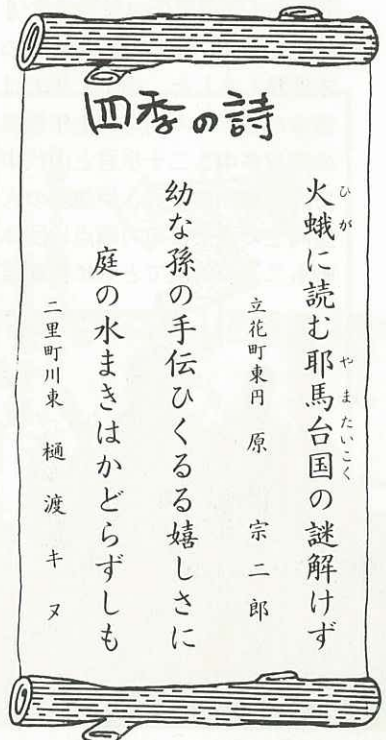 四季の詩
火蛾に読む耶馬台国の謎解けず
ひが
やまたいこく
立花町東円 原 宗二郎
幼な孫の手伝ひくるる嬉しさに
庭の水まきはかどらずしも
二里町川東 樋渡キヌ